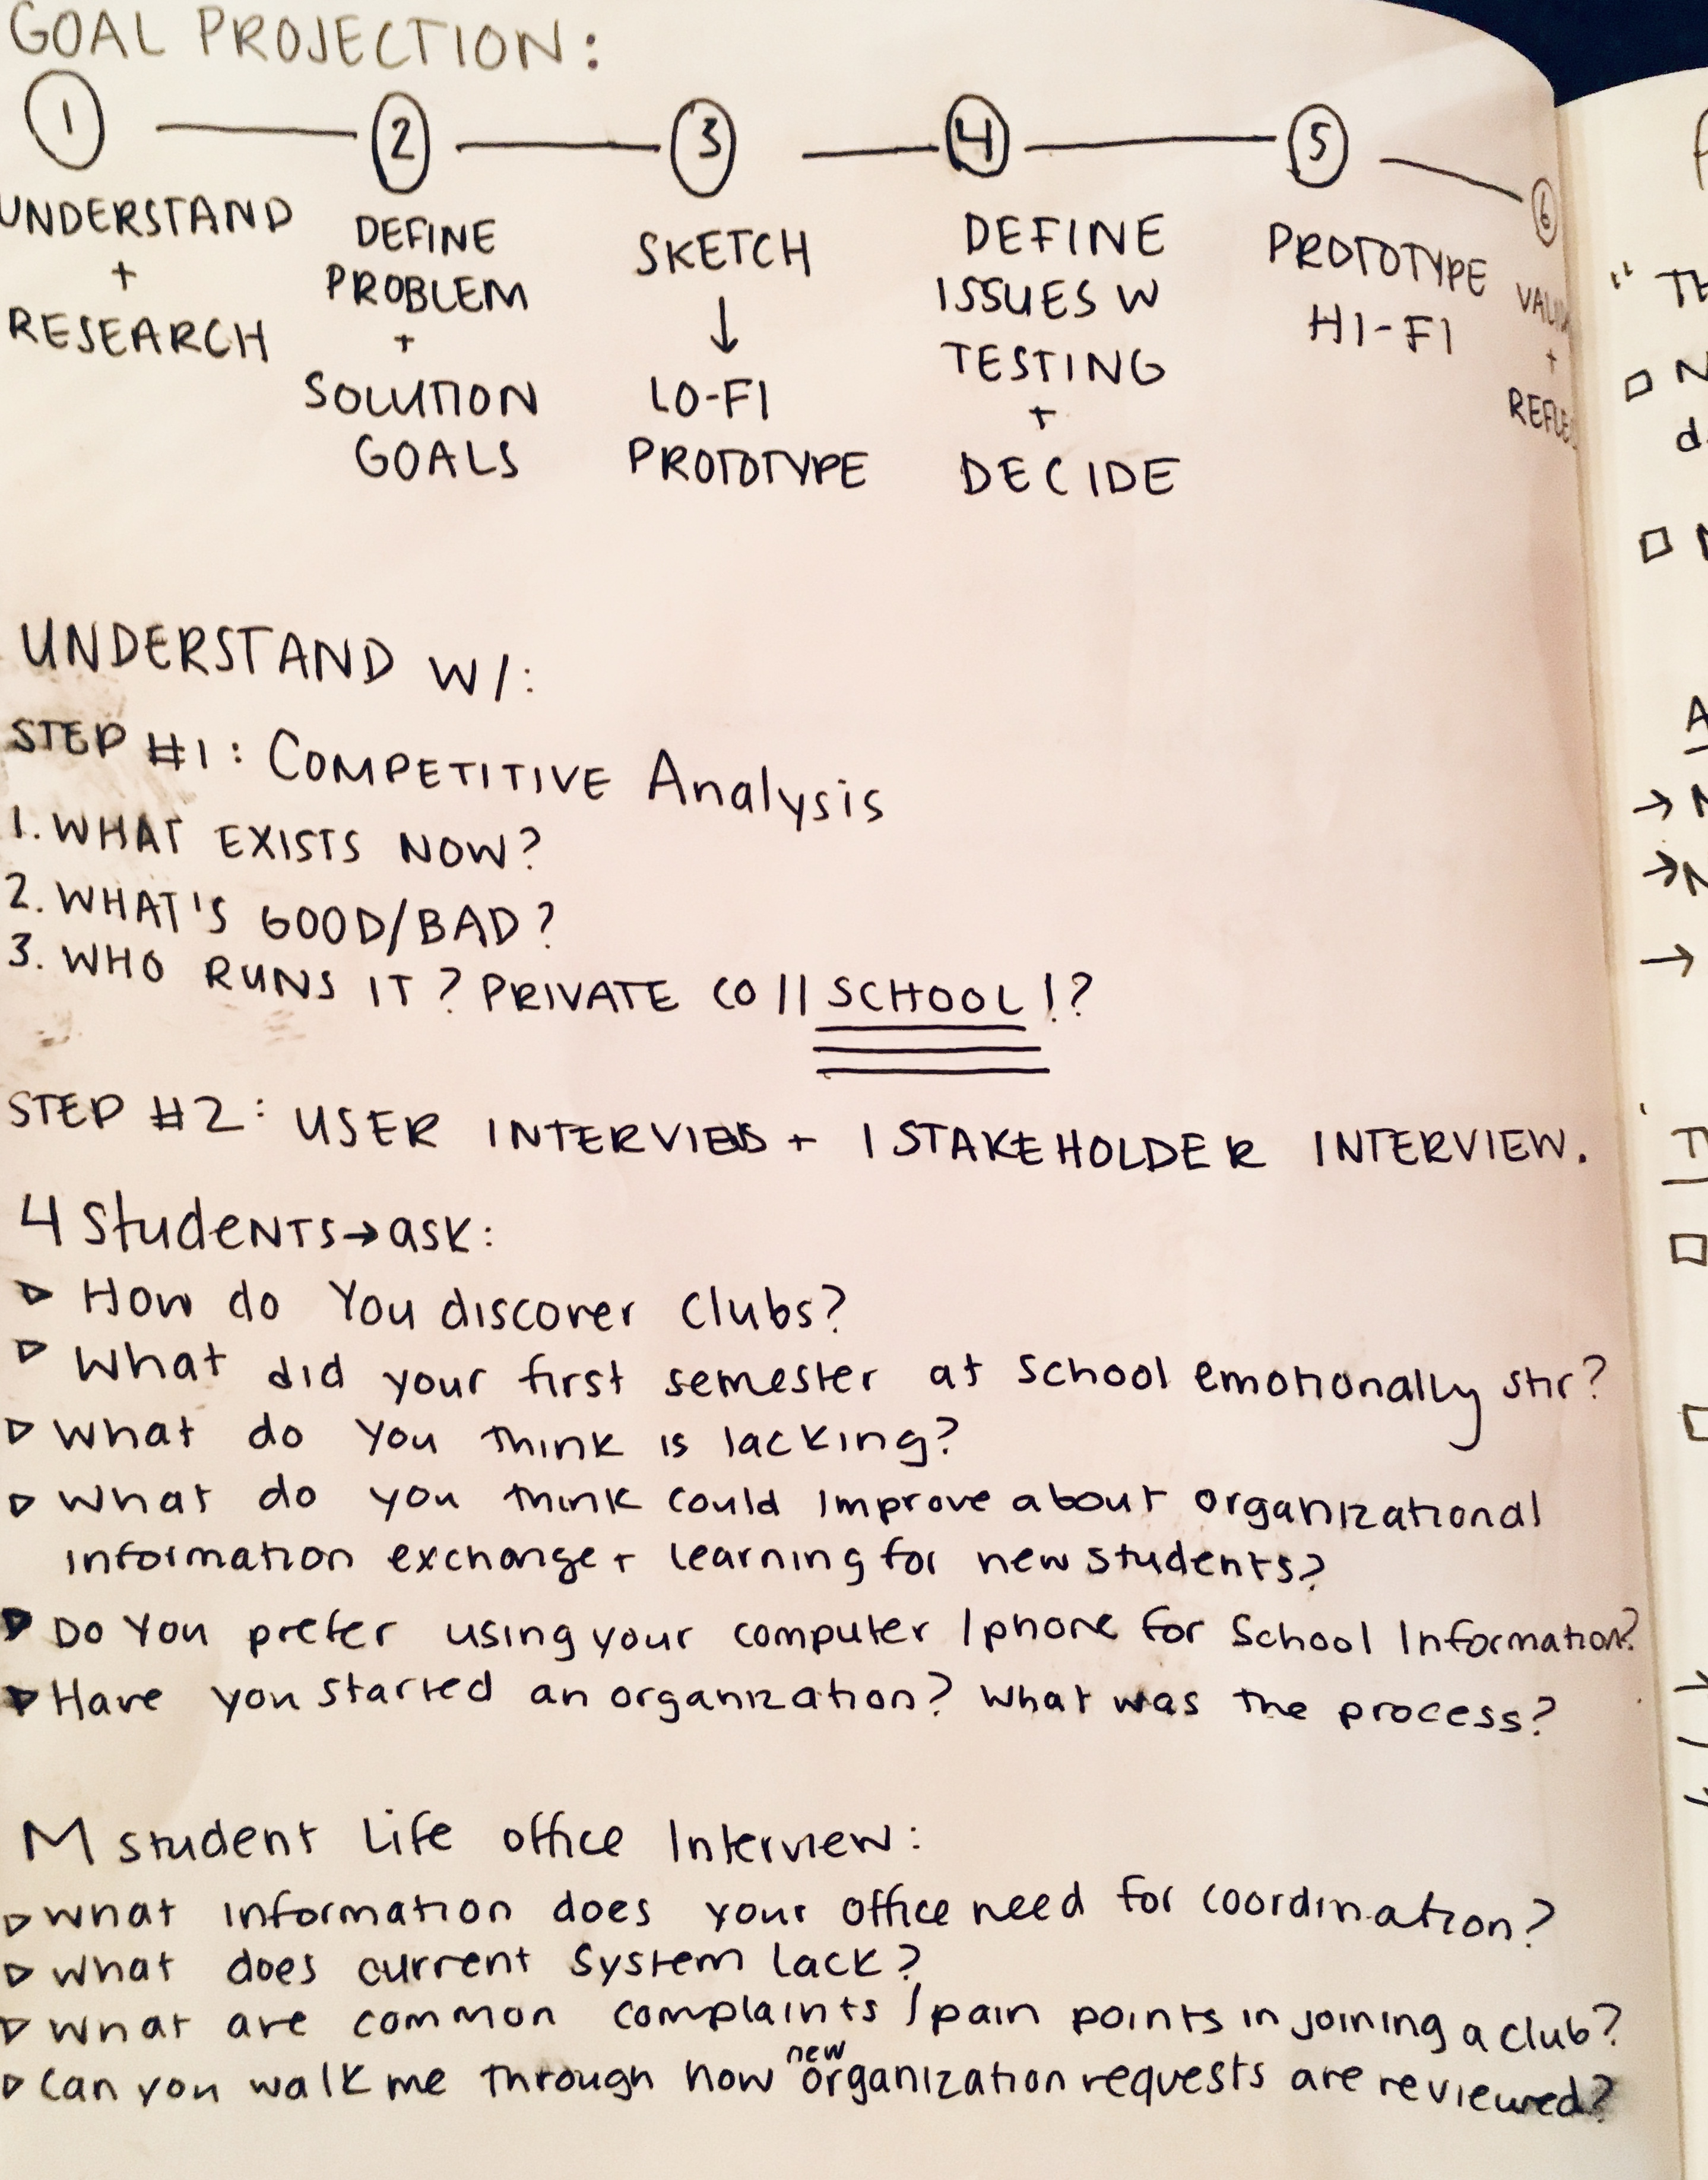 GOAL PROJECTION:
1 2 3 4 5 6
UNDERSTAND
+
RESEARCH
DEFINE
PROBLEM
+
SOLUTION
GOALS
SKETCH
↓
LO-FI
PROTOTYPE
DEFINE
ISSUES W
TESTING
+
DECIDE
PROTOTYPE
HI-FI
+
UNDERSTAND W/:
STEP #1: COMPETITIVE Analysis
1. WHAT EXISTS NOW?
2. WHAT'S GOOD/BAD?
3. WHO RUNS IT? PRIVATE CO || SCHOOL!?
STEP #2: USER INTERVIEWS + 1 STAKEHOLDER INTERVIEW.
4 StudeNTS→ask:
▷ How do You discover Clubs?
▷ What did your first semester at School emotionally stir?
▷ What do You think is lacking?
▷ What do you think could improve about organizational
information exchange + learning for new students?
▷ Do You prefer using your computer / phone for School Information?
▷ Have you started an organization? What was the process?
M student Life office Interview:
▷ What information does your office need for coordination?
▷ What does current System Lack?
▷ What are common complaints / pain points in joining a club?
▷ Can you walk me through how new organization requests are reviewed?